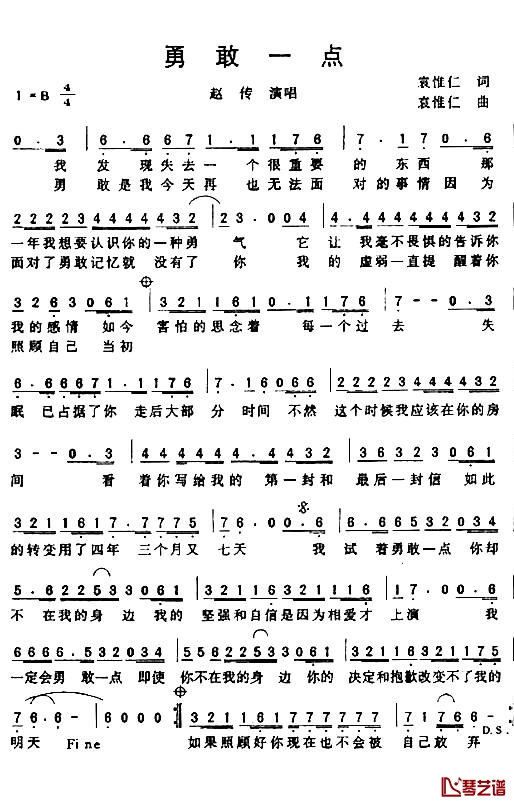 勇敢一点
1=B 4/4 赵传 演唱 袁惟仁 词
袁惟仁 曲
0.3 6.667 1.1176 7.170.6
我 发现失去一 个很重要 的东西那
勇 敢是我今天再 也无法面 对的事情因为
22223444444432 23.004 4.444.4432
一年我想要认识你的一种勇 气 它 让我毫不畏惧的告诉你
面对了勇敢记忆就没有了 你 我 的虚弱一直提醒着你
3263061 321161 0.1176 7--0.3
我的感情 如今 害怕的思念着 每一个过 去 失
照顾自己 当初
6.666711.1176 7.16066 22223444444432
眠 已占据了你 走后大部 分 时间 不然 这个时候我应该在你的房
3--0.3 444444.4432 363323061
间 看 着你写给我的 第一封和 最后一封信 如此
32116117.7775 76.00.6 6.665332034
的转变用了四年 三个月又 七天 我 试 着勇敢一点 你却
5.622533061 3211613211116 17.00.6
不 在我的身 边 我的 坚强和自信是因为相爱才 上演 我
6666.5332034 5.622533061 321161321116
一定会勇 敢一点 即使 你不在我的身 边 你的 决定和抱歉改变不了我的
76.6- 6000 321171117776 17766- D.S.
明天 Fine 如果照顾好你现在也不会被 自己放弃
琴艺谱